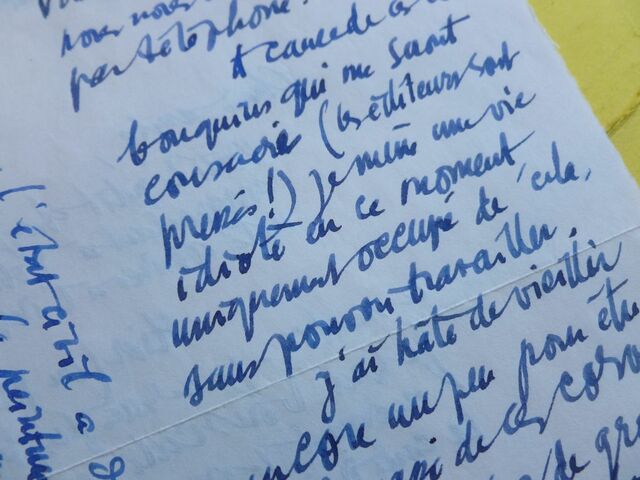 nous
par téléphone.
et cause de ces
bouquins qui me sont
consacrés (les éditeurs sont
pressés!) je mène une vie
idiote en ce moment,
uniquement occupé de cela,
sans pouvoir travailler.
J'ai hâte de vieillir
encore un peu pour être
de ces
de
l'état civil a
peinture